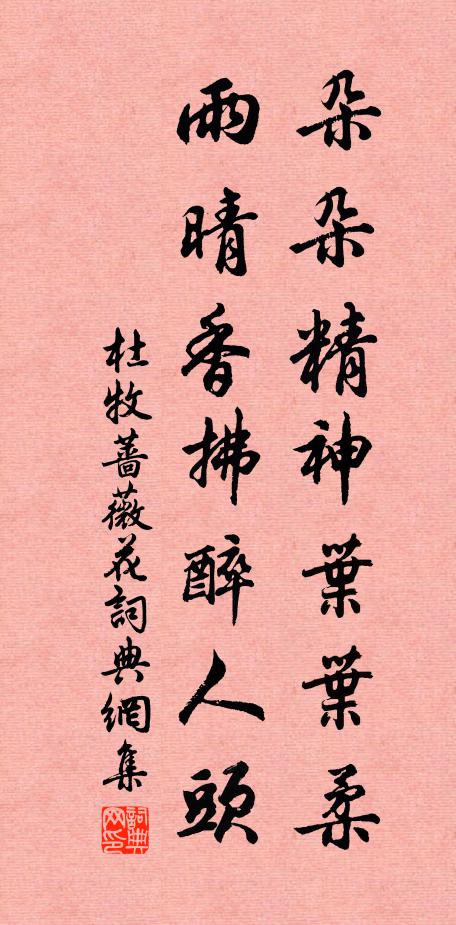 朵朵精神葉葉柔
雨晴香拂醉人頭
杜牧薔薇花詞典網集
詞典网印